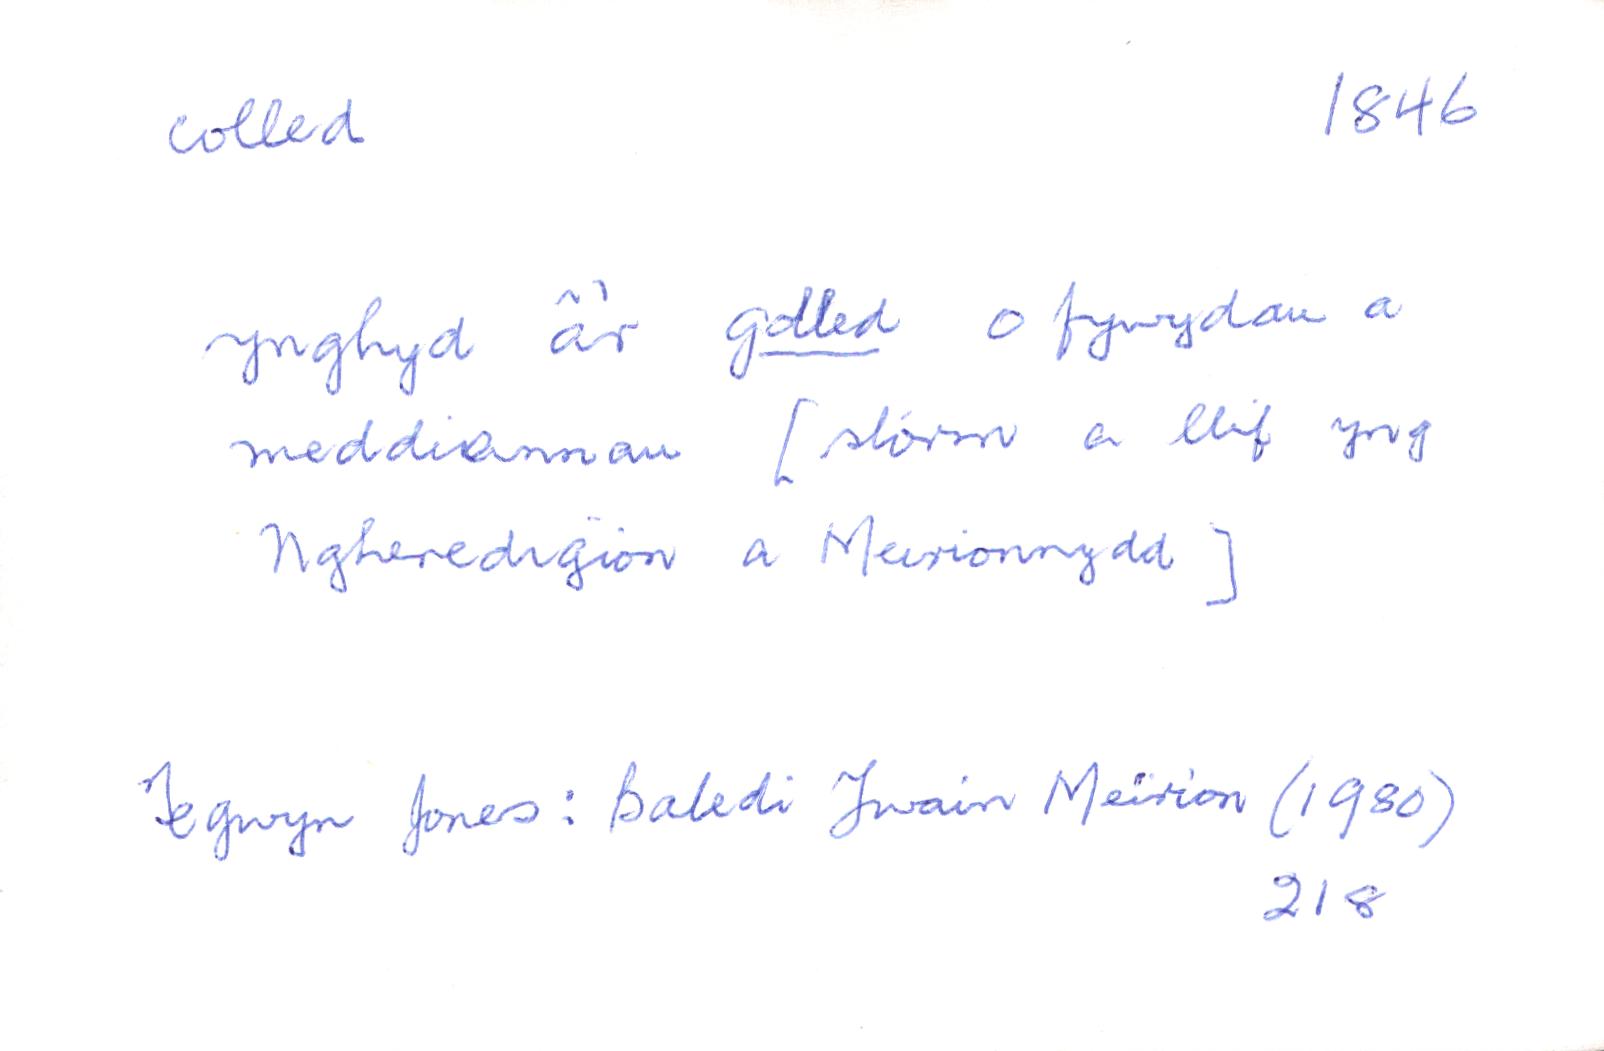 colled
1846
ynghyd â'r golled o fywydau a
meddiannau [storm a llif yng
Ngheredigion a Meirionnydd]
Tegwyn Jones: Baledi Ywain Meirion (1980)
218